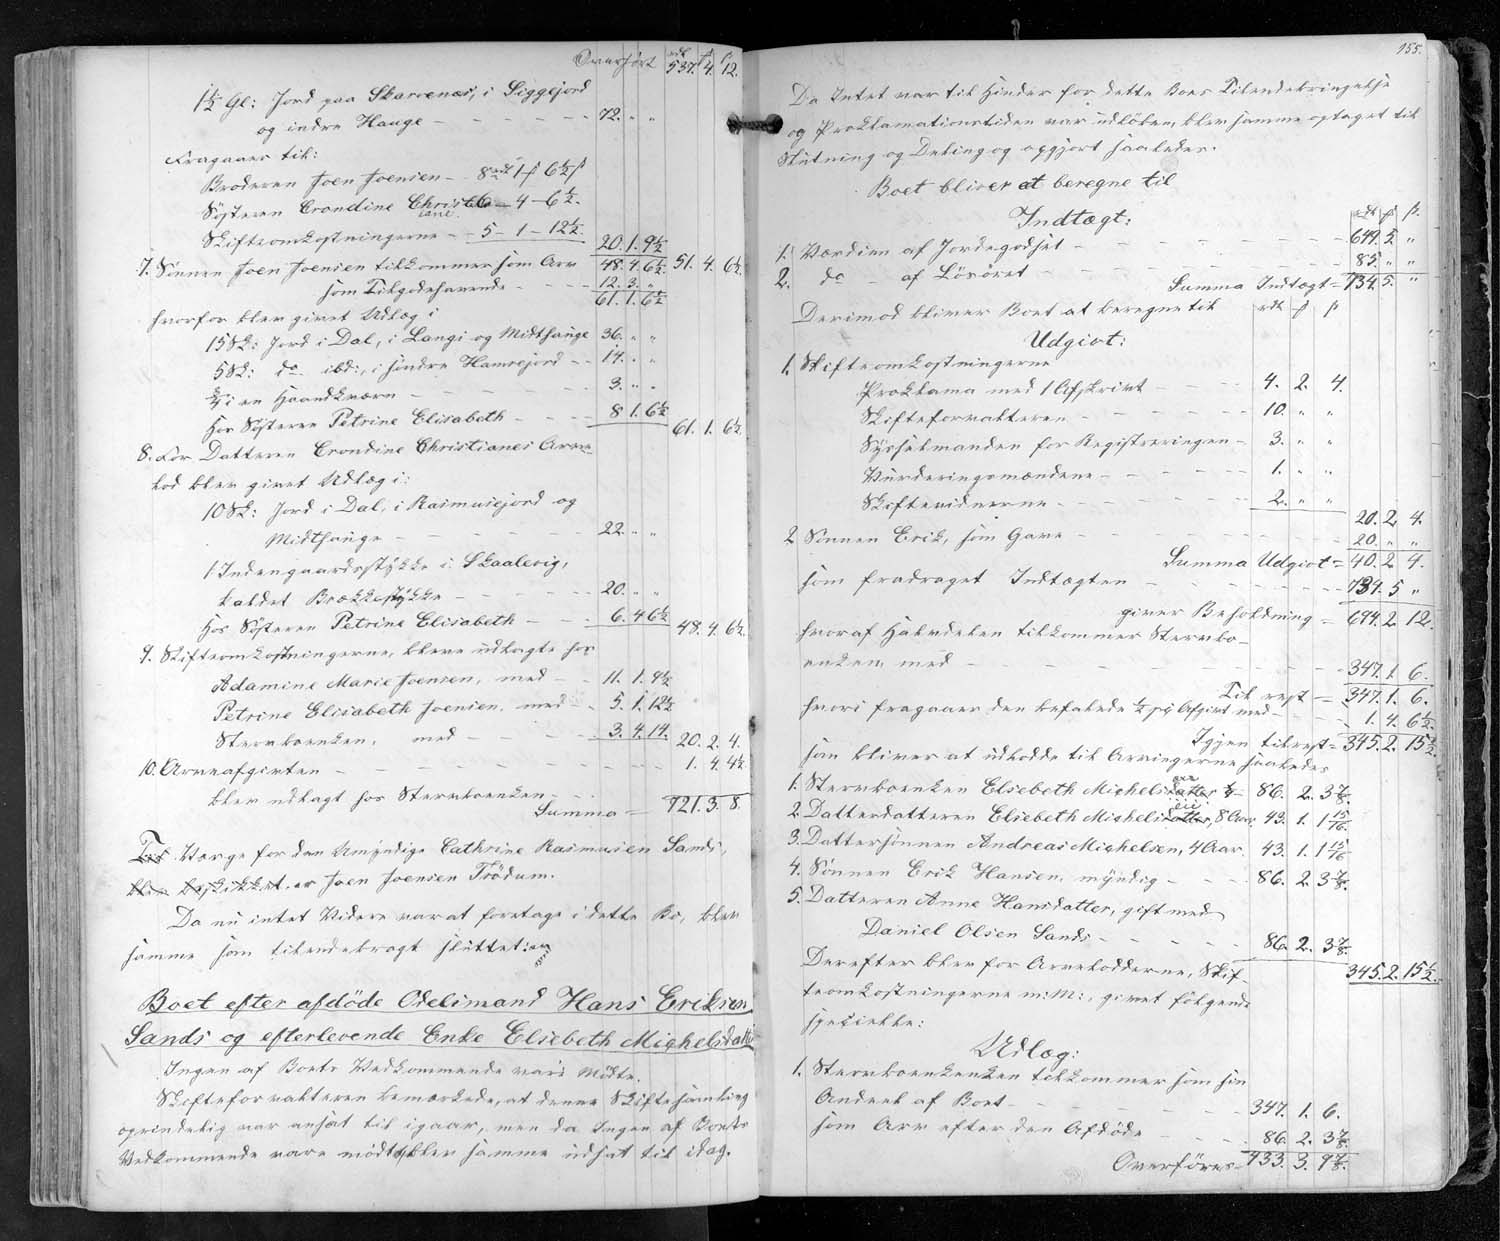 Overført 537. 4. 12.
1½ Gl: Jord paa Skarvenæs, i Liggejord
og indre Hauge - - - - 72. " "
Fragaaer til:
Broderen Joen Joensen - 8 rd 1 ß 6½ s
Søsteren Trondine Christiane 6 - 4 - 6½.
Skifteomkostningerne - 5 - 1 - 12½. 20. 1. 9½
7. Sønnen Joen Joensen tilkommer som Arv 48. 4. 6½ 51. 4. 6½
som Tilgodehavende - - - 12. 3. "
61. 1. 6½
hvorfor blev givet Udlæg i
15 Sk: Jord i Dal, i Langi og Midthauge 36. " "
5 Sk: do ibd:, i søndre Hamrejord - - 14. " "
i en Haandkværn - - - - 3. " "
hos Søsteren Petrine Elisabeth - - - 8 1. 6½
61. 1. 6½
8. For Datteren Trondine Christianes Arve
lod blev givet Udlæg i:
10 Sk: Jord i Dal, i Rasmusejord og
Midthauge - - - - 22. " "
1 Indengaardsstykke i Skaalevig,
kaldet Brækkestykke - - - - 20. " "
hos Søsteren Petrine Elisabeth - - 6. 4 6½ 48. 4. 6½
9. Skifteomkostningerne, bleve udlagte hos
Adamine Marie Joensen, med - - 11. 1. 9½
Petrine Elisabeth Joensen, med - 5. 1. 12½
Stervboenken, med - - - 3. 4. 14. 20. 2. 4.
10. Arveafgivten - - - - 1. 4. 4½
blev udlagt hos Stervboenken - -
Summa = 721. 3. 8.
Til Værge for den Umyndige Cathrine Rasmusen Sands,
blev beskikket er Joen Joensen Trödum.
Da nu intet Videre var at foretage i dette Bo, blev
samme som tilendebragt sluttet:
Boet efter afdöde Odelsmand Hans Eriksen
Sands og efterlevende Enke Elsebeth Michelsdatt
Ingen af Boets Vedkommende vare mödte.
Skifteforvalteren bemærkede, at denne Skiftesamling
oprindelig var ansat til igaar, men da Ingen af Boets
Vedkommende vare mödte, blev samme udsat til idag.
155.
Da Intet var til Hinder for dette Boes Tilendebringelse
og Proklamationstiden var udlöben, blev samme optaget til
Slutning og Deling og opgjort saaledes.
Boet bliver at beregne til
Indtægt:
1. Værdien af Jordegodset - - - - 649. 5 "
2. do - af Lösöret - - - - 85. " "
Summa Indtægt = 734. 5. "
Derimod bliver Boet at beregne til
Udgivt:
1. Skifteomkostningerne
Proklama med 1 Afskrivt - - - 4. 2. 4.
Skifteforvalteren - - - - 10. " "
Sysselmanden for Registreringen - 3. " "
Vurderingsmændene - - - - 1. " "
Skiftevidnerne - - - - 2. " "
20. 2. 4.
2 Sönnen Erik, som Gave - - - - 20. " "
Summa Udgivt = 40. 2 4.
som fradraget Indtægten - - - - 734. 5 "
giver Beholdning = 694. 2. 12.
hvoraf Halvdelen tilkommer Stervbo-
enken med - - - - 347. 1. 6.
Til rest = 347. 1. 6.
hvori fragaaer den befalede ½ pC Afgivt med - - - 1. 4. 6½.
Igjen tilrest = 345. 2. 15½.
som bliver at udlodde til Arvingerne saaledes
1. Stervboenken Elsebeth Michelsdatter - 86. 2. 3⅞.
2. Datterdatteren Elsebeth Michelsdatter, 8 Aar 43. 1. 1 15/16.
3. Dattersönnen Andreas Michelsen, 4 Aar. 43. 1. 1 15/16
4. Sönnen Erik Hansen, myndig - - - 86. 2. 3⅞.
5. Datteren Anne Hansdatter, gift med
Daniel Olsen Sands - - - - 86. 2. 3⅞.
345. 2. 15½.
Derefter blev for Arvelodderne, Skif-
teomkostningerne m: M:, givet fölgende
specielle:
Udlæg:
1. Stervboenkenken tilkommer som sin
Andeel af Boet - - - - 347. 1. 6.
som Arv efter den Afdöde - - - 86. 2. 3⅞.
Overföres - 433. 3. 9⅞.